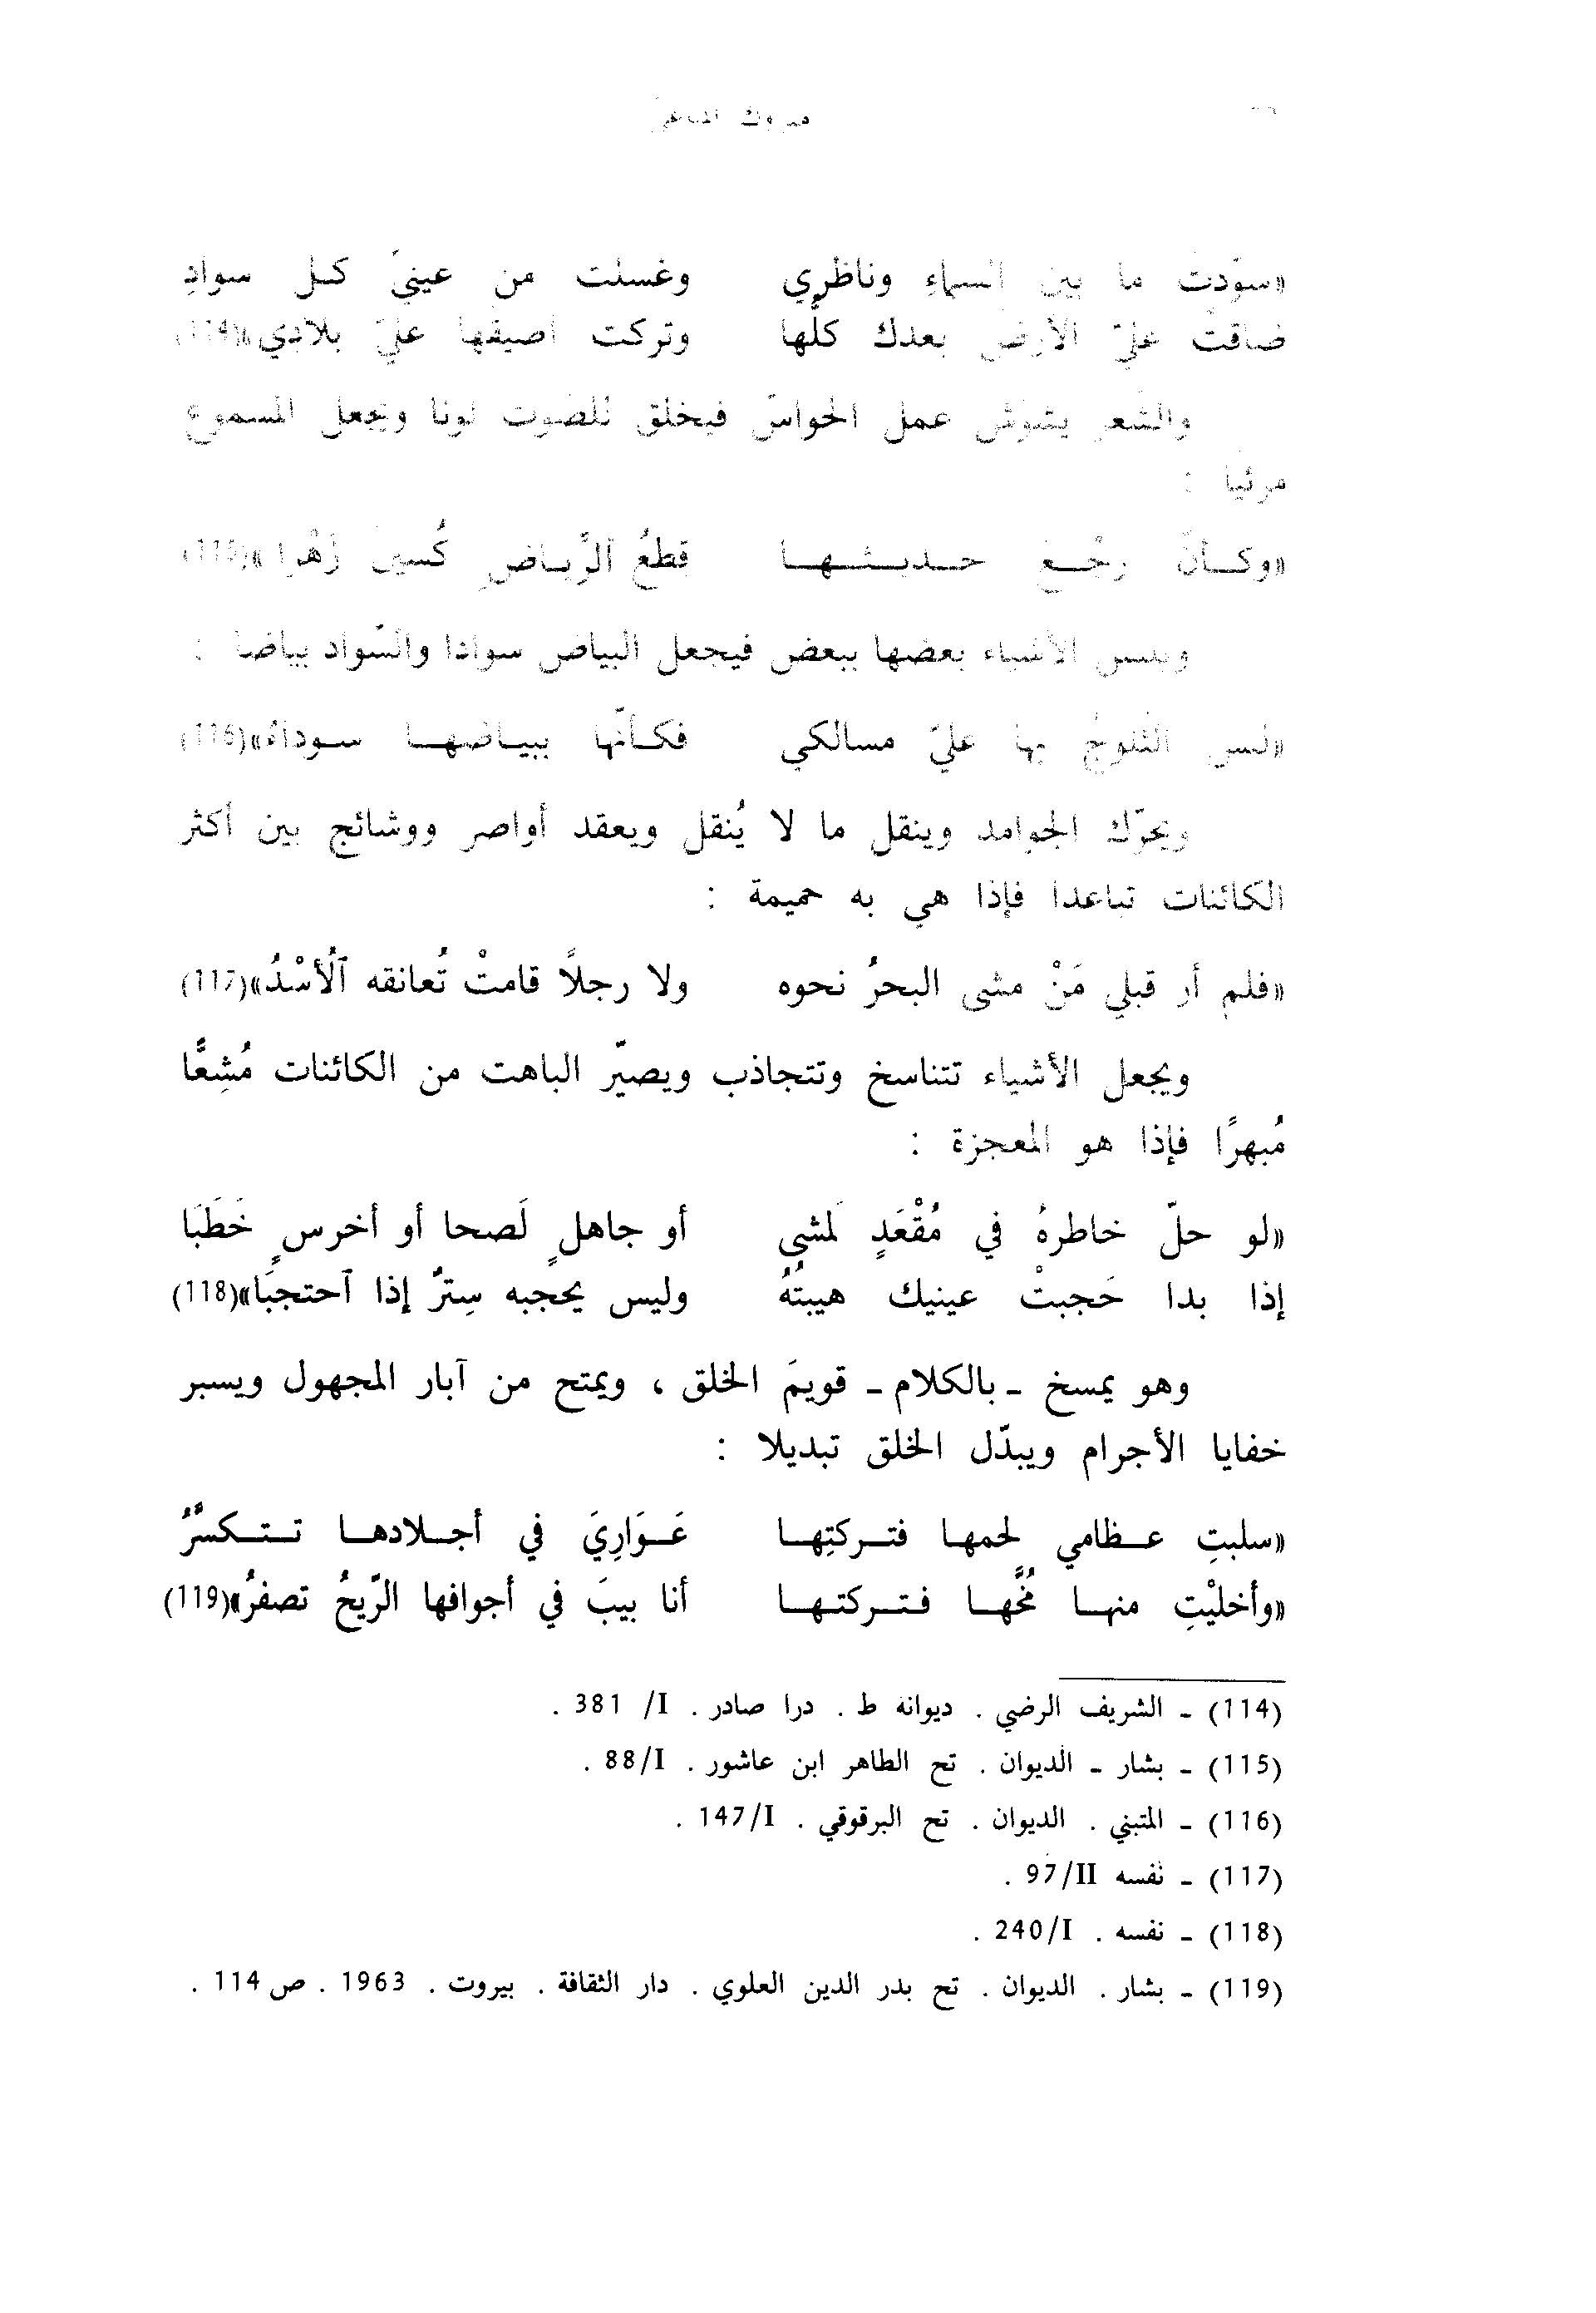 مبروك المناعي
«سوّدت ما بين السماءِ وناظري وغسلت من عينيّ كل سوادِ
ضاقتْ عليّ الأرض بعدك كلُّها وتركت أضيقها عليّ بلادي»(114)
والشعر يشوّش عمل الحواسّ فيخلق للصّوت لونا ويجعل المسموع
مرئيا :
«وكأنّ رجْع حديثها قطعُ ٱلرِّياضِ كُسينَ زَهْرا»(115)
ويلبس الأشياء بعضها ببعض فيجعل البياض سوادا والسّواد بياضا :
«لبس الثّلوجُ بها عليّ مسالكي فكأنّها ببياضها سوداءُ»(116)
ويحرّك الجوامد وينقل ما لا يُنقل ويعقد أواصر ووشائج بين أكثر
الكائنات تباعدا فإذا هي به حميمة :
«فلم أر قبلي مَنْ مشى البحرُ نحوه ولا رجلاً قامتْ تُعانقه ٱلُأسْدُ»(117)
ويجعل الأشياء تتناسخ وتتجاذب ويصيّر الباهت من الكائنات مُشِعًّا
مُبهرًا فإذا هو المعجزة :
«لو حلّ خاطرهُ في مُقْعَدٍ لَمشى أو جاهلٍ لَصحا أو أخرسٍ خَطَبَا
إذا بدا حَجبتْ عينيك هيبتُهُ وليس يحجبه سِترٌ إذا ٱحتجبَا»(118)
وهو يمسخ - بالكلام - قويمَ الخلق ، ويمتح من آبار المجهول ويسبر
خفايا الأجرام ويبدّل الخلق تبديلا :
«سلبتِ عظامي لحمها فتركتِها عَوَارِيَ في أجلادها تتكسَّرُ
«وأخليْتِ منها مُخَّها فتركتها أنا بيبَ في أجوافها الرّيحُ تصفرُ»(119)
(114) - الشريف الرضي . ديوانه ط . درا صادر . I/ 381 .
(115) - بشار - الديوان . تح الطاهر ابن عاشور . I/88 .
(116) - المتبني . الديوان . تح البرقوقي . I/147 .
(117) - نفسه II/97 .
(118) - نفسه . I/240 .
(119) - بشار . الديوان . تح بدر الدين العلوي . دار الثقافة . بيروت . 1963 . ص 114 .